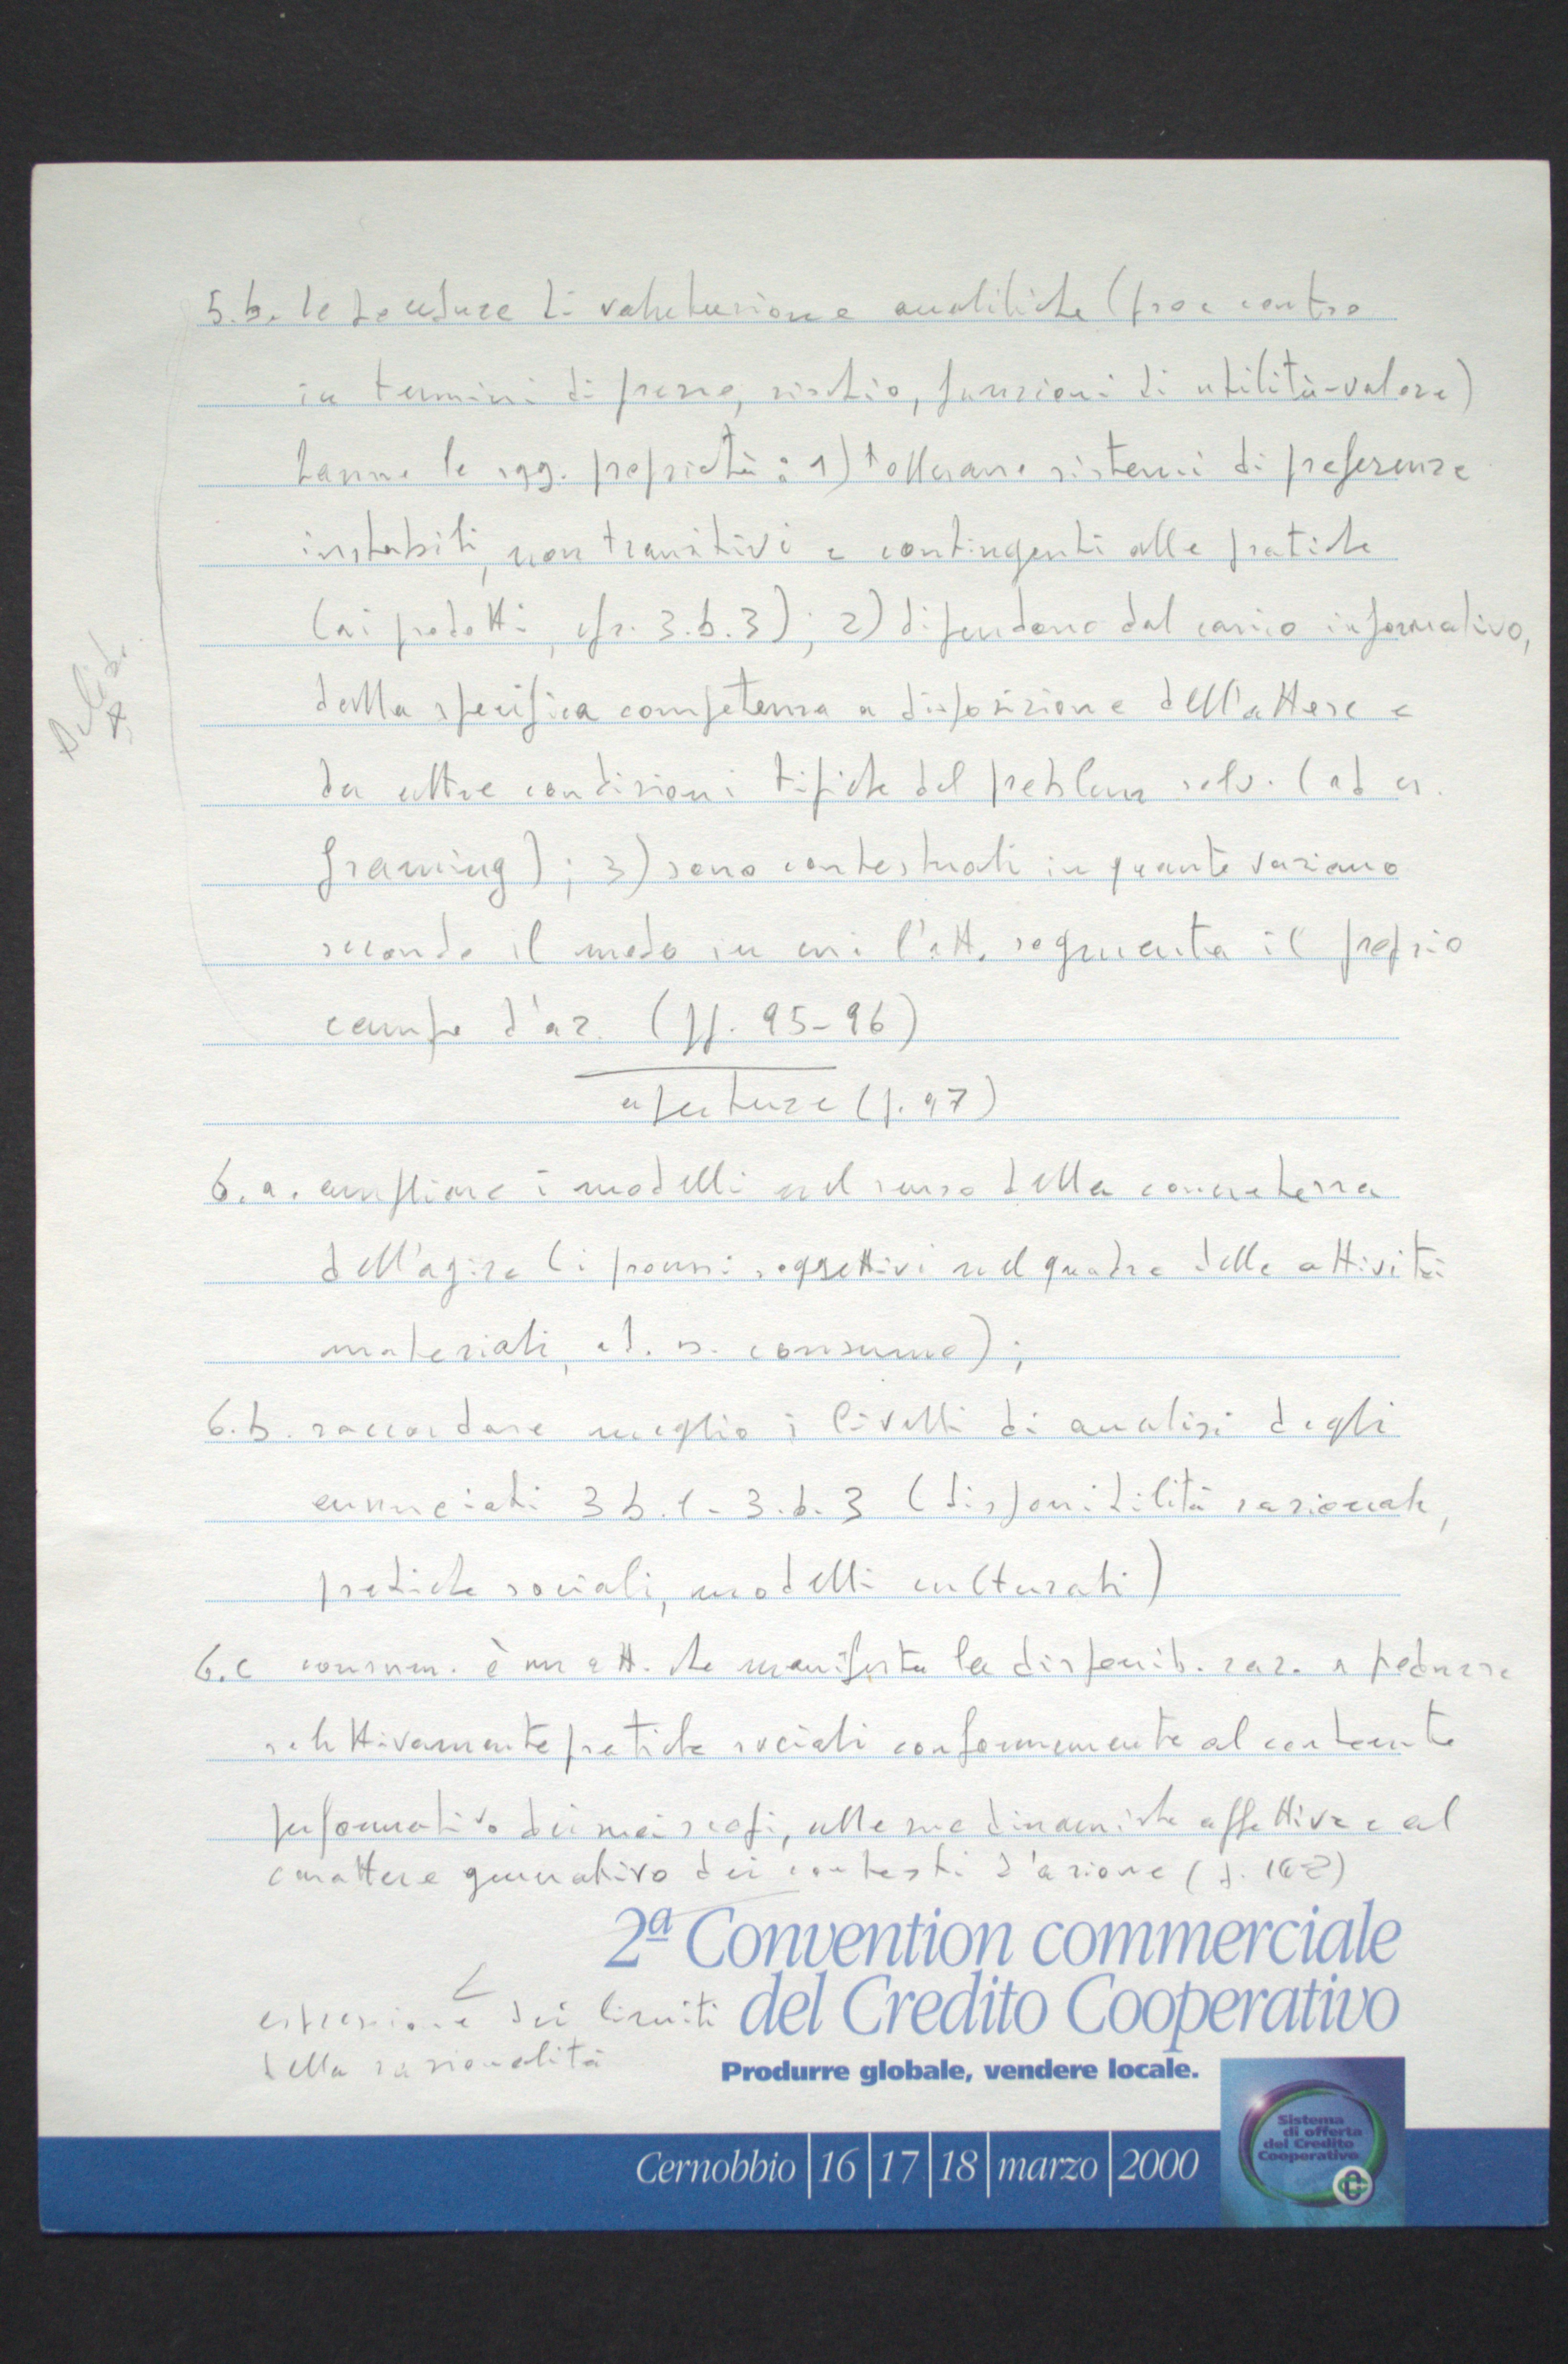 5.b. le procedure di valutazione analitiche (pro e contro
in termini di prezzo, rischio, funzioni di utilità-valore)
hanno le sgg. proprietà: 1) tollerano sistemi di preferenze
instabili, non transitivi e contingenti alle pratiche
(ai prodotti, cfr. 3.b.3); 2) dipendono dal carico informativo,
dalla specifica competenza a disposizione dell'attore e
da altre condizioni tipiche del problem solv. (ad es.
framing); 3) sono contestuali in quanto variano
secondo il modo in cui l'att. segmenta il proprio
campo d'az. (pp. 95-96)
aperture (p. 97)
6.a. ampliare i modelli nel senso della concretezza
dell'agire (i processi soggettivi nel quadro delle attività
materiali, ad. es. consumo);
6.b. raccordare meglio i livelli di analisi degli
enunciati 3b.1-3.b.3 (disponibilità razionale,
pratiche sociali, modelli culturali)
6.c consum. è un att. che manifesta la disponib. raz. a produrre
selettivamente pratiche sociali conformemente al contenuto
informativo dei suoi scopi, alle sue dinamiche affettive e al
carattere generativo dei contesti d'azione (p. 102)
espressione dei limiti
della razionalità
2ª Convention commerciale
del Credito Cooperativo
Produrre globale, vendere locale.
Sistema
di offerta
del Credito
Cooperativo
Cernobbio | 16 | 17 | 18 | marzo | 2000